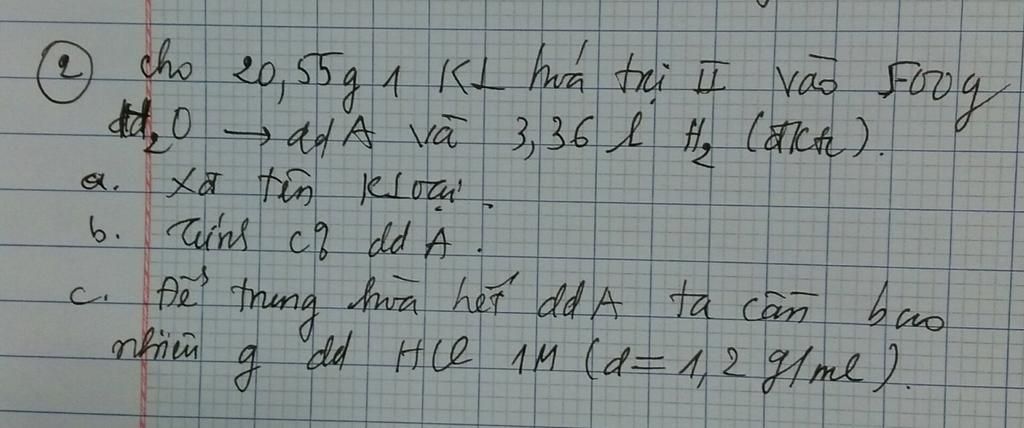 ② Cho 20,55g 1 KL hoá trị II vào 500g
H₂O → ddA và 3,36 l H₂ (đktc).
a. Xđ tên Kloại.
b. Tính C% dd A.
c. Để trung hoà hết ddA ta cần bao
nhiêu g dd HCl 1M (d = 1,2 g/ml).